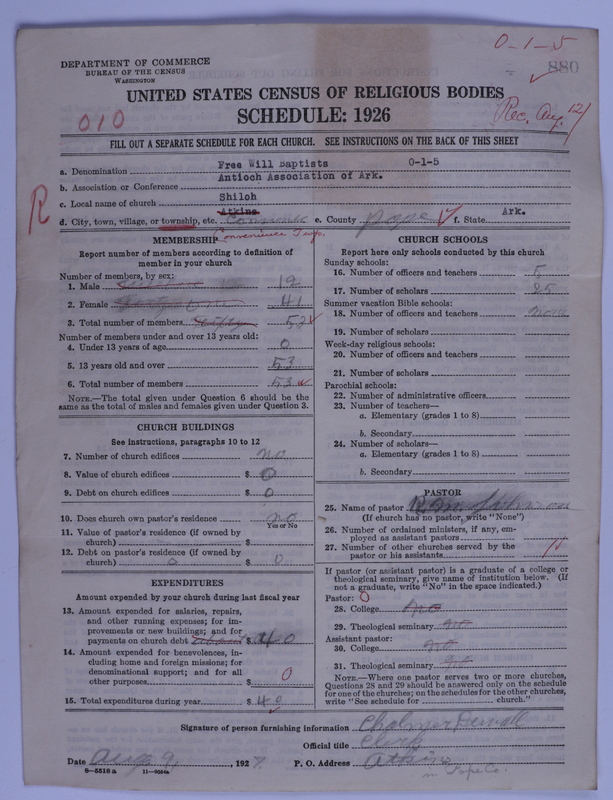 0-1-5
DEPARTMENT OF COMMERCE
BUREAU OF THE CENSUS
WASHINGTON
880
UNITED STATES CENSUS OF RELIGIOUS BODIES
010
SCHEDULE: 1926
Rec. Aug. 12/
FILL OUT A SEPARATE SCHEDULE FOR EACH CHURCH. SEE INSTRUCTIONS ON THE BACK OF THIS SHEET
a. Denomination Free Will Baptists 0-1-5
b. Association or Conference Antioch Association of Ark.
c. Local name of church Shiloh
Atkins
R
d. City, town, village, or township, etc. e. County Pope f. State Ark.
Convenience Twp.
MEMBERSHIP
Report number of members according to definition of
member in your church
Number of members, by sex:
1. Male 12
2. Female 41
3. Total number of members 53
Number of members under and over 13 years old:
4. Under 13 years of age 0
5. 13 years old and over 53
6. Total number of members 53
NOTE.—The total given under Question 6 should be the
same as the total of males and females given under Question 3.
CHURCH BUILDINGS
See instructions, paragraphs 10 to 12
7. Number of church edifices no
8. Value of church edifices $ 0
9. Debt on church edifices $ 0
10. Does church own pastor's residence no
Yes or No
11. Value of pastor's residence (if owned by
church) $
12. Debt on pastor's residence (if owned by
church) 0 $ 0
EXPENDITURES
Amount expended by your church during last fiscal year
13. Amount expended for salaries, repairs,
and other running expenses; for im-
provements or new buildings; and for
payments on church debt $ 40
14. Amount expended for benevolences, in-
cluding home and foreign missions; for
denominational support; and for all
other purposes $ 0
15. Total expenditures during year $ 40
CHURCH SCHOOLS
Report here only schools conducted by this church
Sunday schools:
16. Number of officers and teachers 5
17. Number of scholars 25
Summer vacation Bible schools:
18. Number of officers and teachers none
19. Number of scholars
Week-day religious schools:
20. Number of officers and teachers
21. Number of scholars
Parochial schools:
22. Number of administrative officers
23. Number of teachers—
a. Elementary (grades 1 to 8)
b. Secondary
24. Number of scholars—
a. Elementary (grades 1 to 8)
b. Secondary
PASTOR
25. Name of pastor
(If church has no pastor, write "None")
26. Number of ordained ministers, if any, em-
ployed as assistant pastors
27. Number of other churches served by the
pastor or his assistants
If pastor (or assistant pastor) is a graduate of a college or
theological seminary, give name of institution below. (If
not a graduate, write "No" in the space indicated.)
Pastor: 0
28. College no
29. Theological seminary no
Assistant pastor:
30. College no
31. Theological seminary no
NOTE.—Where one pastor serves two or more churches,
Questions 28 and 29 should be answered only on the schedule
for one of the churches; on the schedules for the other churches,
write "See schedule for church."
Signature of person furnishing information
Official title Clerk
Date Aug 9, 1927. P. O. Address Atkins
8-5518a 11-9264a in Pope Co.